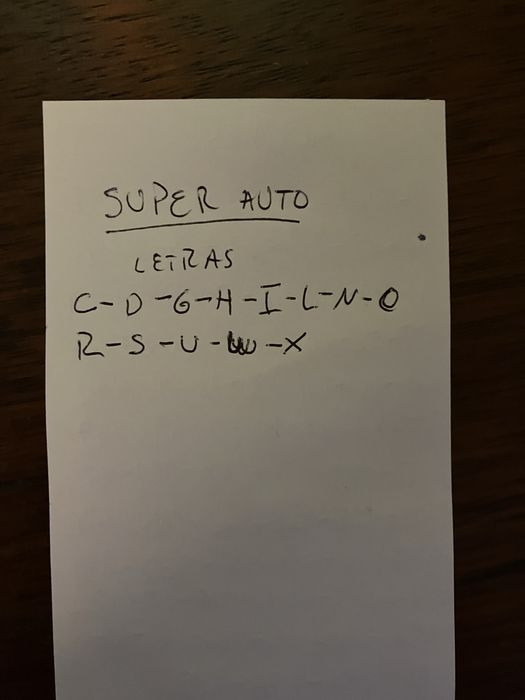 SUPER AUTO
LETRAS
C-D-G-H-I-L-N-O
R-S-U-W-X